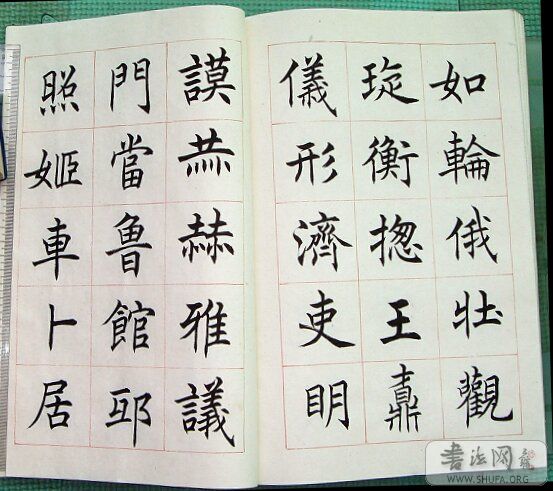 如輪俄壯觀
琁衡揔王
儀形濟吏眀
謨赫雅議
門當魯館
照姬車卜居
书法网
WWW.SHUFA.ORG